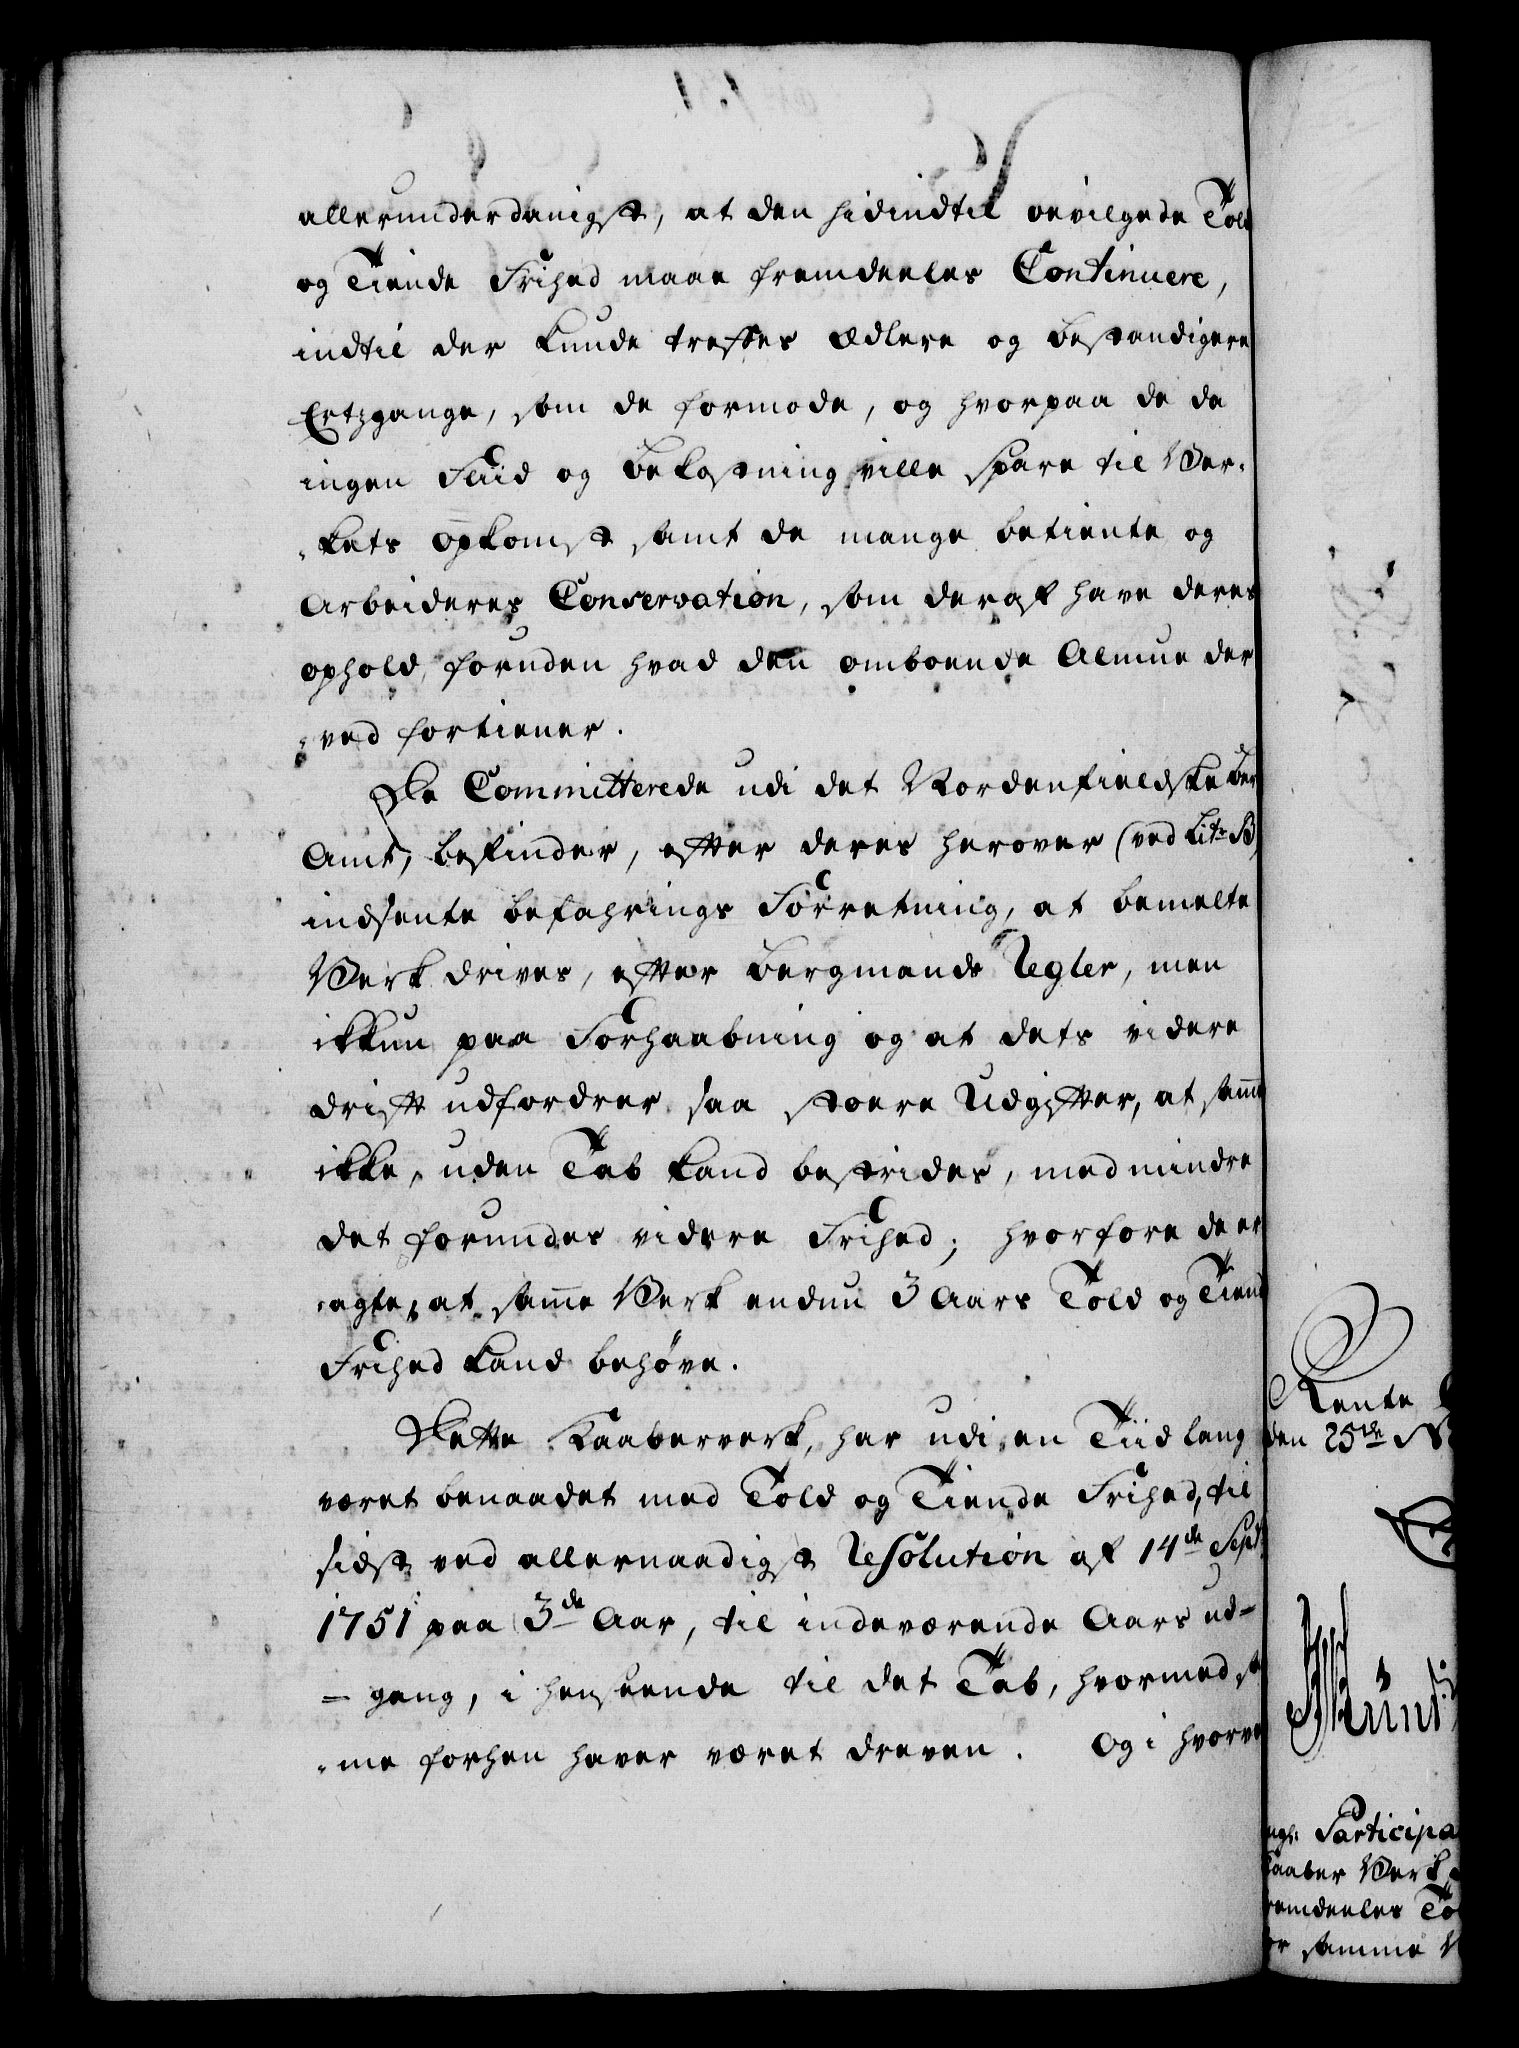 allerunderdanigst, at den hidindtil bevilgede Told
og Tiende Frihed maae fremdeeles Continuere,
indtil der kunde treffes ædlere og bestandigere
Ertzgange, som de formode, og hvorpaa de da
ingen Fliid og bekostning ville spare til Wer-
kets opkomst samt de mange betiente og
Arbeideres Conservation, som deraf have deres
ophold, foruden hvad den omboende Almue der
ved fortiener.
De Committerede udi det Nordenfieldske Ber
Amt, befinder, efter deres herover (ved Litr B)
indsente befahrings Forretning, at bemelte
Werk drives, efter bergmands Regler, men
ikkun paa Forhaabning og at dets videre
drift udfordrer saa stoere Udgifter, at samme
ikke, uden Tab kand bestrides, med mindre
det forundes videre Frihed; hvorfore de er
agte, at samme Werk endnu 3 Aars Told og Tiend
Frihed kand behøve.
Dette Kaaberverk, har udi en Tiid lang
været benaadet med Told og Tiende Frihed, til
sidst ved allernaadigst Resolution af 14de Sept:
1751 paa 3de Aar, til indeværende Aars ud-
- gang, i henseende til det Tab, hvormed sa
me forhen haver været dreven. Og i hvorve
Rente
den 25de
ngl: Participa
Kaaber Werk
remdeeles To
or samme W